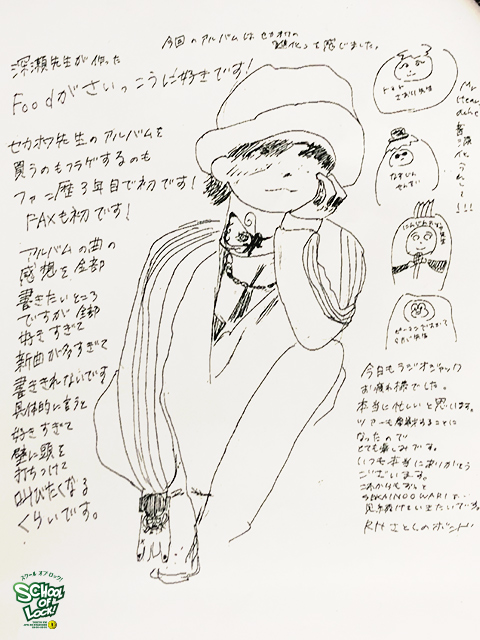 今回のアルバムはセカオワの
進化を感じました。
深瀬先生が作った
Foodがさいっこうに好きです!
セカオワ先生のアルバムを
買うのもフラゲするのも
ファン歴3年目で初です!
FAXも初です!
アルバムの曲の
感想を全部
書きたいところ
ですが全部
好きすぎて
新曲が多すぎて
書ききれないです
具体的に言うと
好きすぎて
壁に頭を
打ちつけて
叫びたくなる
くらいです。
トマト
さおり先生
なすじん
せんせい
今日もラジオジャック
お疲れ様でした。
本当に忙しいと思います。
ツアーも
なったので
とても楽しみです。
いつも本当にありがとう
ございます。
これからもずっと
SEKAI NO OWARI
RN さとくんのボンド
スクール オブ ロック!
SCHOOL
OF
LOCK!